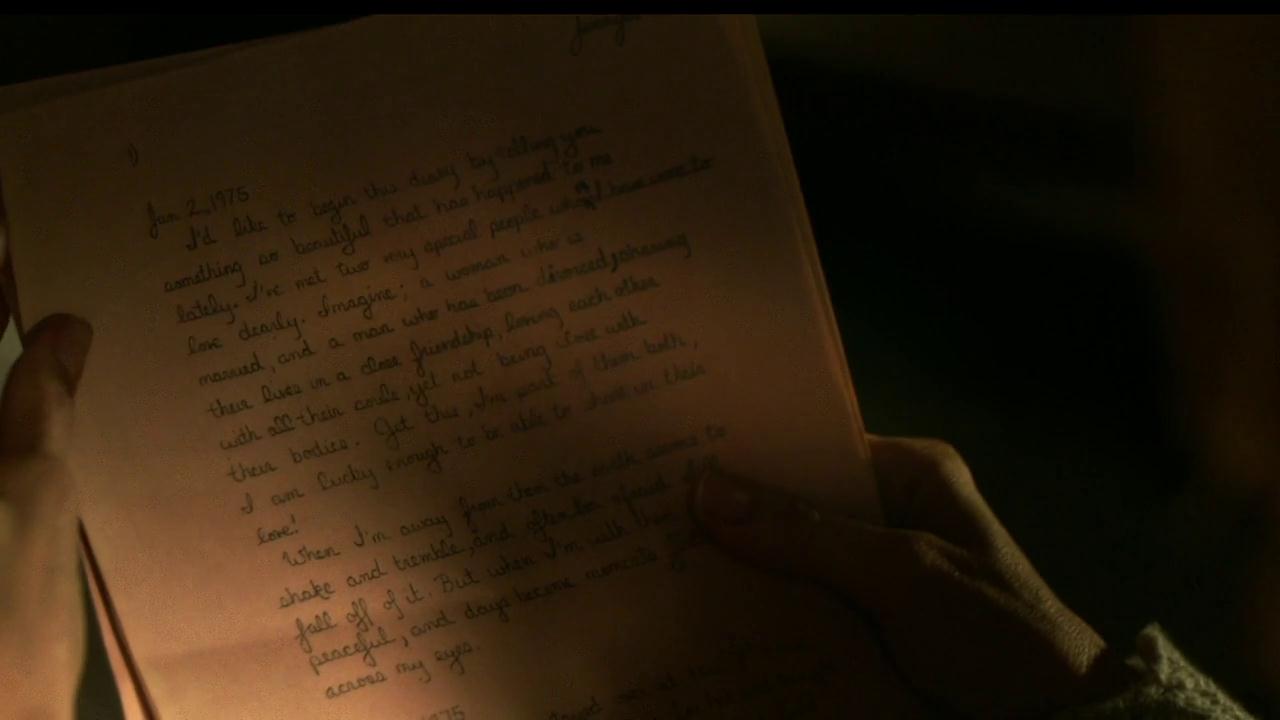 1)
Jan 2, 1975
I'd like to begin this diary by telling you
something so beautiful that has happened to me
lately. I've met two my special people who I have come to
love dearly. Imagine; a woman who is
married, and a man who has been divorced, sharing
their lives in a close friendship, loving each other
with all their souls, yet not being love with
their bodies. Get this, I'm part of them both,
I am lucky enough to be able to share in their
love!
When I'm away from them the earth seems to
shake and tremble, and often I'm afraid I'll
fall off of it. But when I'm with them
peaceful, and days become moments
across my eyes.
1975